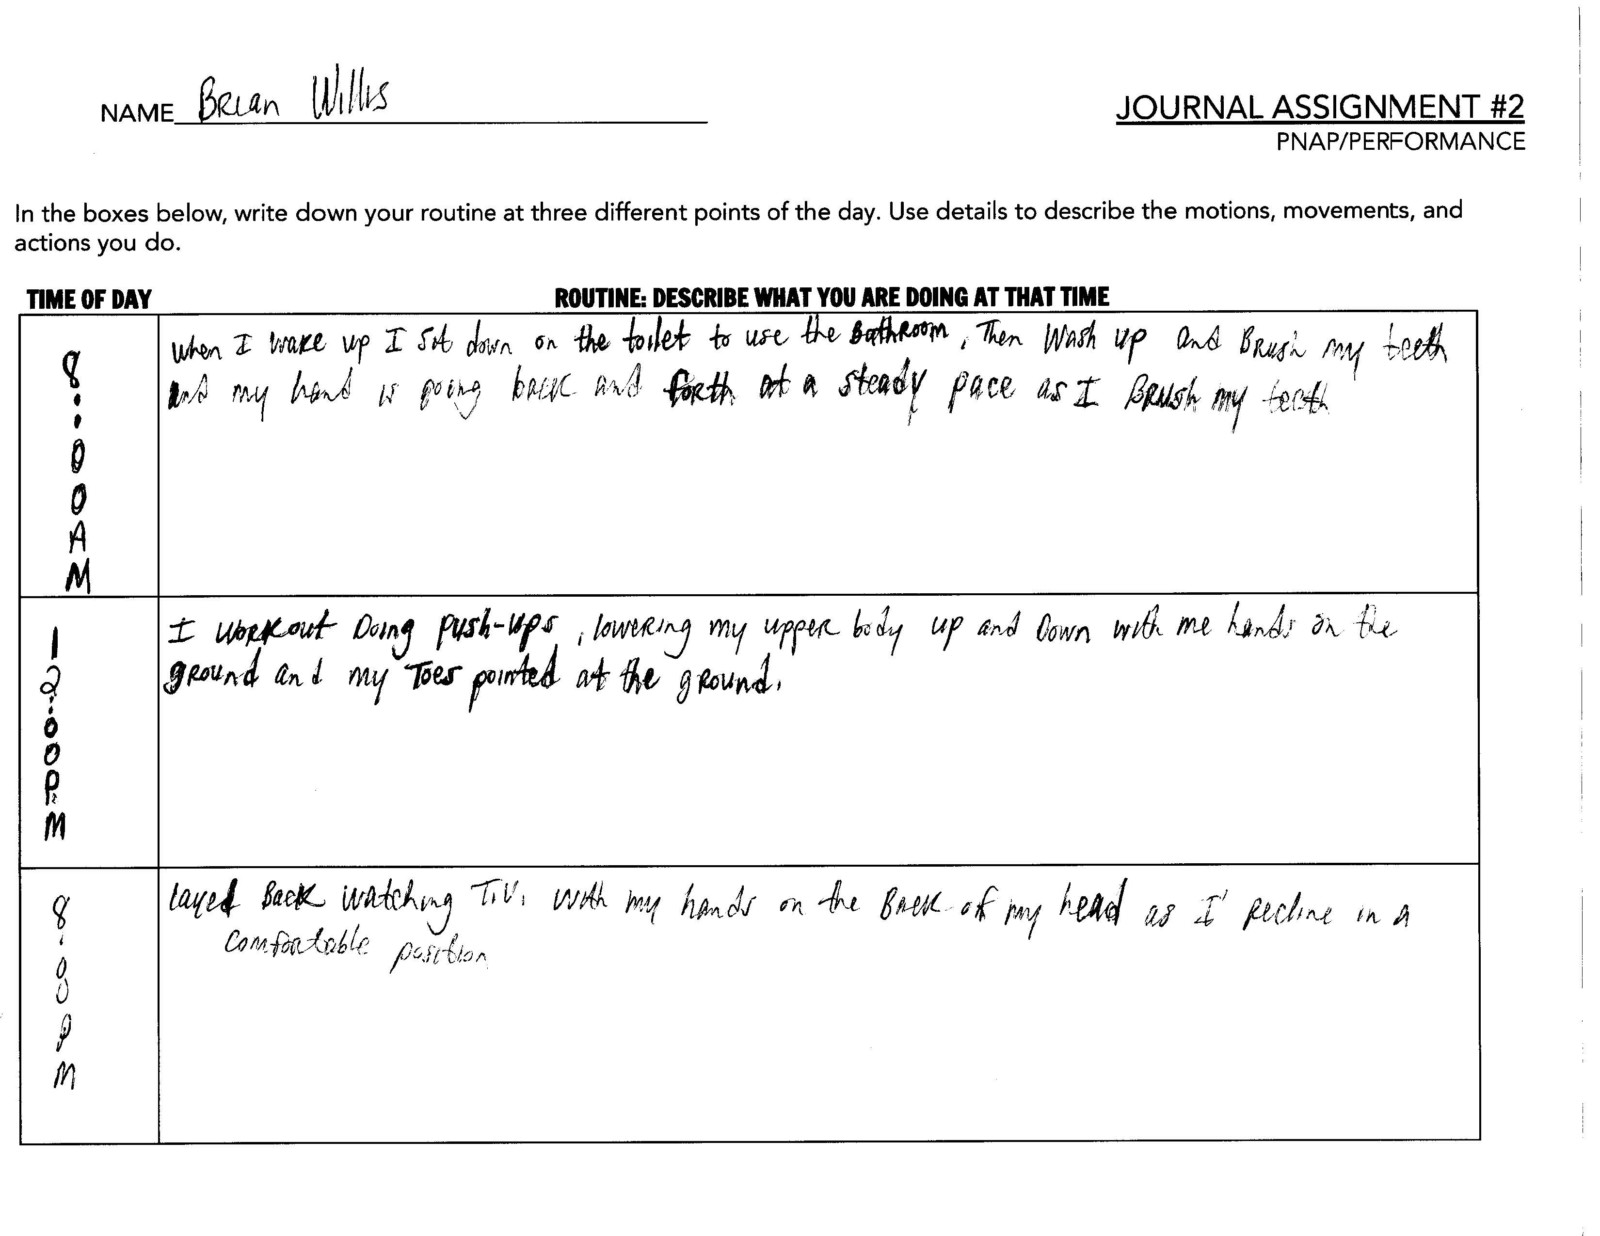 NAME Brian Willis
JOURNAL ASSIGNMENT #2
PNAP/PERFORMANCE
In the boxes below, write down your routine at three different points of the day. Use details to describe the motions, movements, and
actions you do.
TIME OF DAY ROUTINE: DESCRIBE WHAT YOU ARE DOING AT THAT TIME
8:00AM
When I wake up I sit down on the toilet to use the Bathroom, Then Wash up and Brush my teeth
and my hand is going back and forth at a steady pace as I Brush my teeth
12:00P.M
I workout Doing push-ups, lowering my upper body up and Down with me hands on the
ground and my Toes pointed at the ground.
8:00PM
layed Back watching T.V. with my hands on the Back of my head as I recline in a
comfortable position